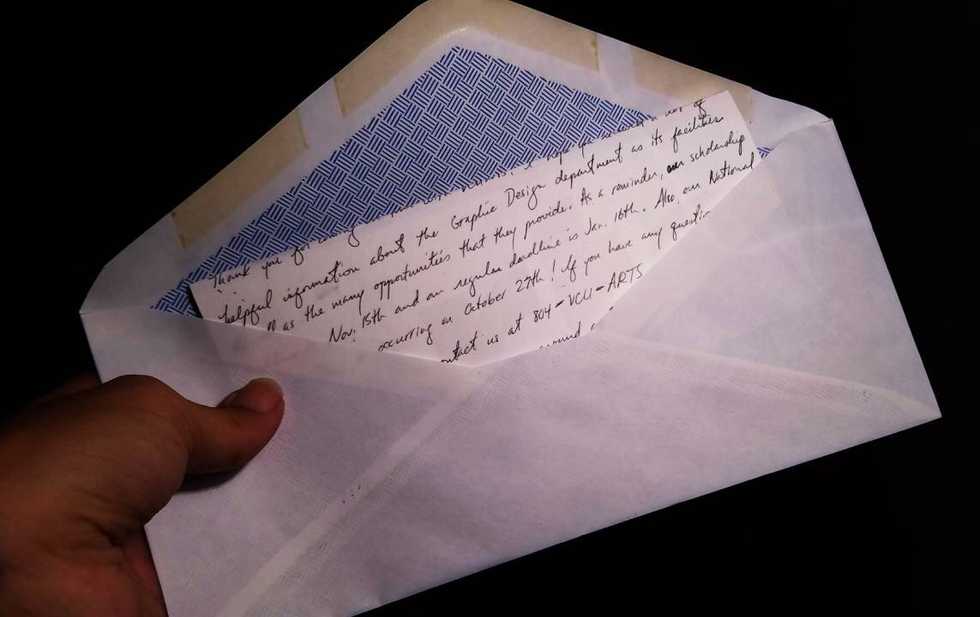 Thank you for
helpful information about the Graphic Design department as its facilities
as the many opportunities that they provide. As a reminder, our scholarship
Nov. 15th and our regular deadline is Jan. 16th. Also, our National
occurring on October 27th! If you have any
us at 804-VCU-ARTS